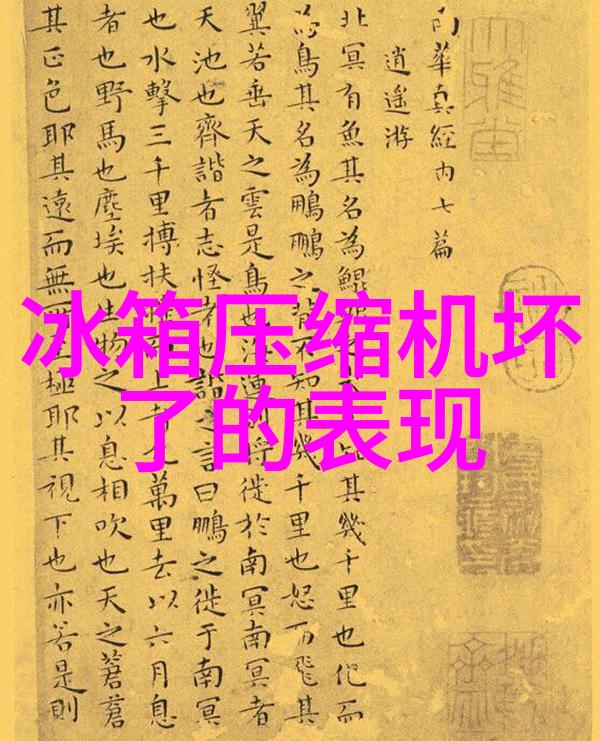 冰箱压缩机坏
了的表现
南華真經内七篇
逍遥游
北冥有魚其名為鯤其幾千里也化而
為鳥其名為鵬鵬之背不知其幾千里也怒而飛其
翼若垂天之雲是鳥也海運則將徙於南冥南冥者
天池也齊諧者志怪者也諧之言曰鵬之徙于南冥
也水擊三千里搏扶搖而上者九萬里去以六月息
者也野馬也塵埃也生物之以息相吹也天之蒼蒼
其正色耶其遠而無所至極耶其視下也亦若是則